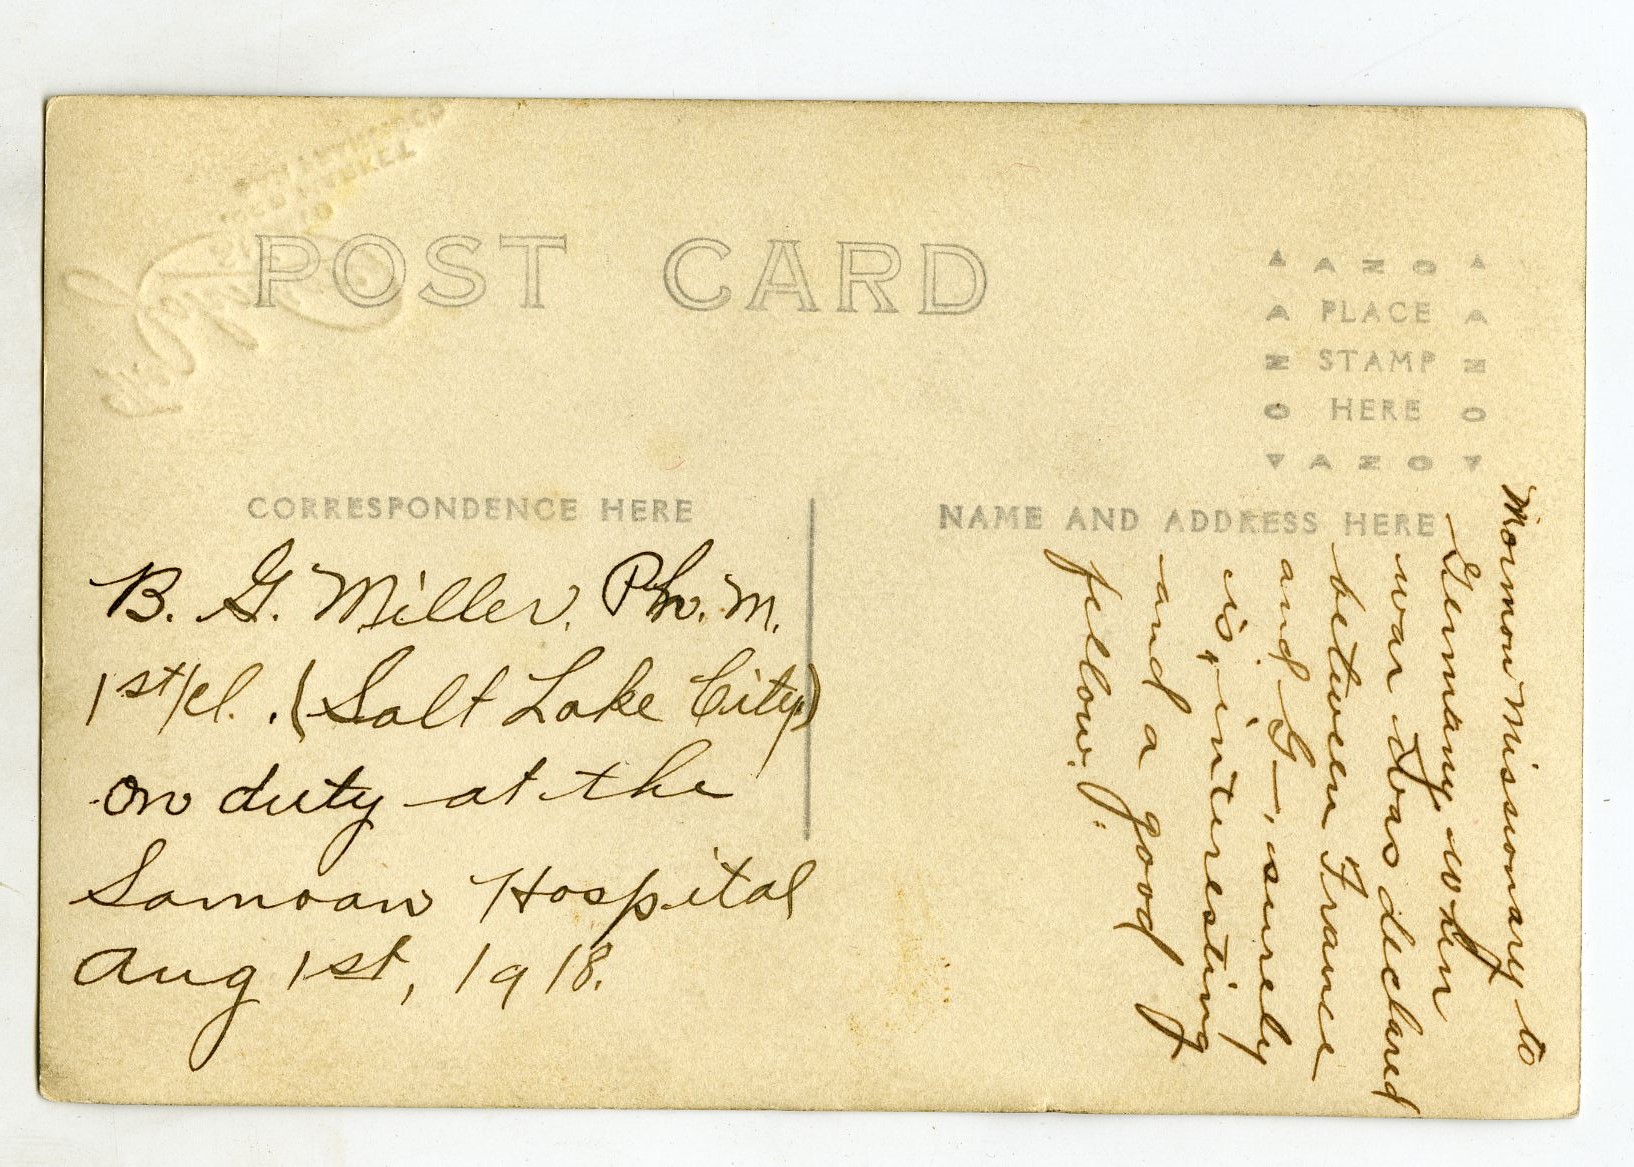 POST CARD
AZO
PLACE
STAMP
HERE
AZO
CORRESPONDENCE HERE
NAME AND ADDRESS HERE
B. G. Miller, Ph. M.
1st/cl. (Salt Lake City)
on duty at the
Samoan Hospital
Aug 1st, 1918.
Mormon Missionary to
Germany when
war was declared
between France
and G—, surely
is, interesting
and a good
fellow.